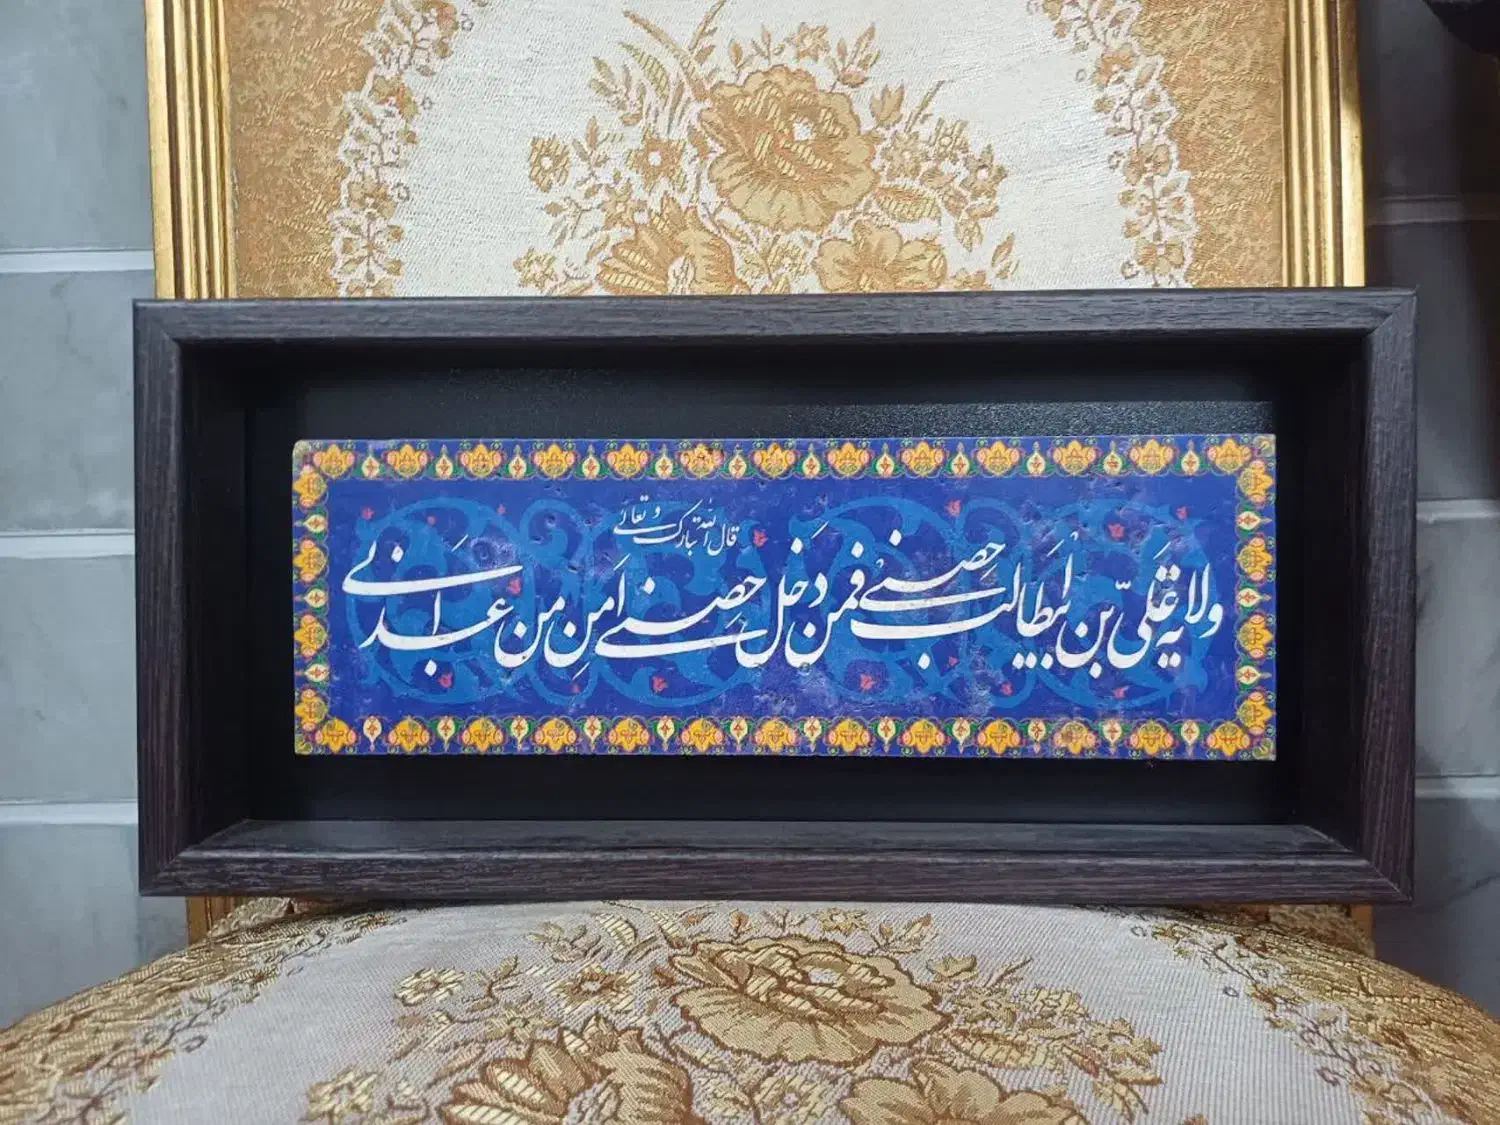 قال الله تبارک و تعالی
ولایة عَلیّ بن ابیطالب حِصنی فمَن دَخَلَ حِصنی اَمِنَ مِن عَذابی